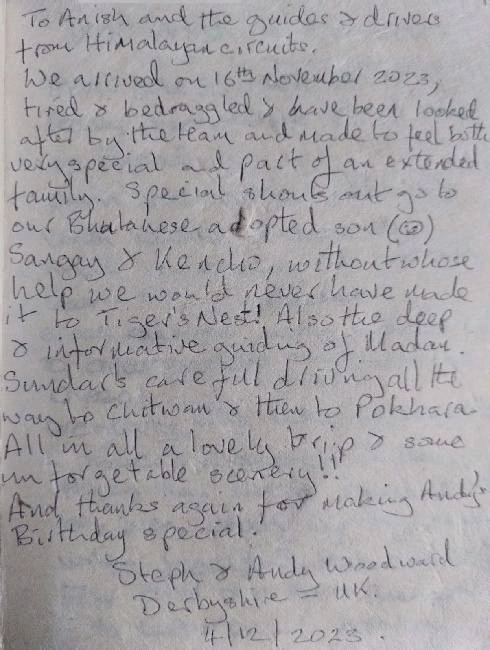 To Anish and the guides & drivers
from Himalayan circuits.
We arrived on 16th November 2023,
tired & bedraggled & have been looked
after by the team and made to feel both
very special and part of an extended
family. Special shouts out go to
our Bhutanese adopted son (☺)
Sangay & Kencho, without whose
help we would never have made
it to Tiger's Nest! Also the deep
& informative guiding of Madan.
Sundar's care full driving all the
way to Chitwan & then to Pokhara.
All in all a lovely trip & some
un forgetable scenery!!
And thanks again for making Andy's
Birthday special.
Steph & Andy Woodward
Derbyshire = UK.
4/12/2023.